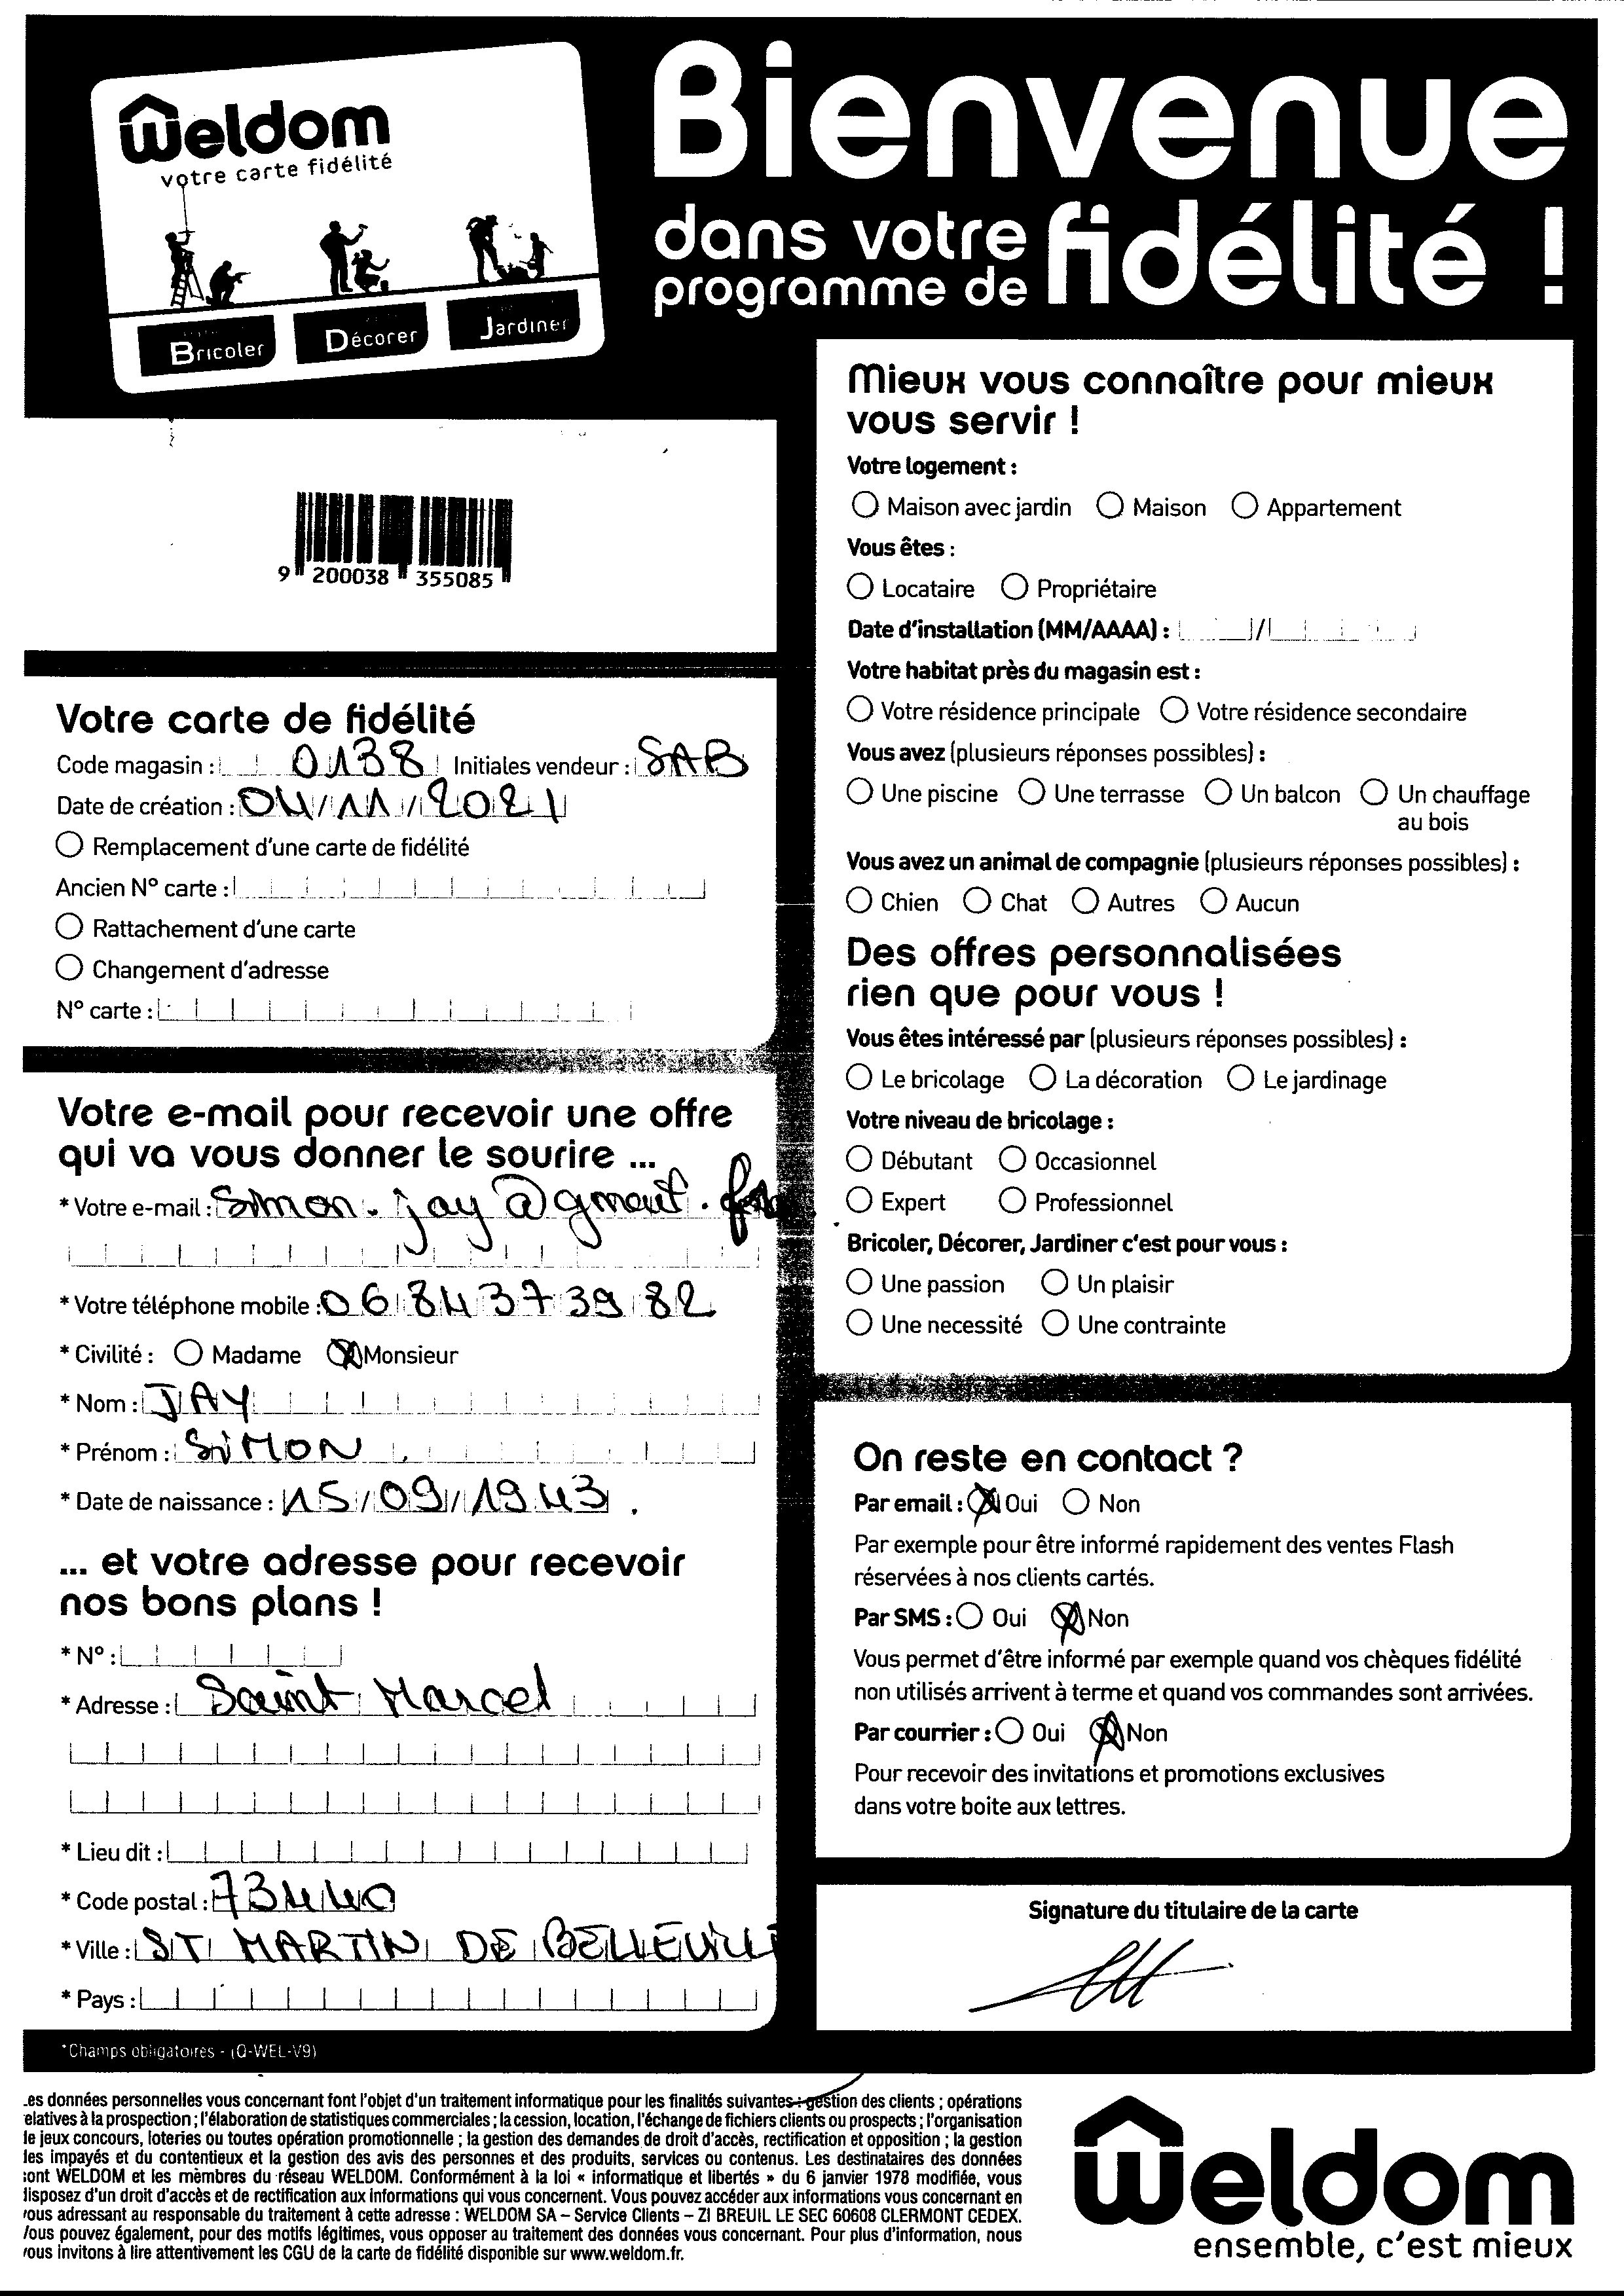 Weldom
votre carte fidélité
Bricoler
Décorer
Jardiner
Bienvenue
dans votre
programme de
fidélité !
9 200038 355085
Votre carte de fidélité
Code magasin : 0138 Initiales vendeur : SAB
Date de création : 04/11/2021
Remplacement d'une carte de fidélité
Ancien N° carte :
Rattachement d'une carte
Changement d'adresse
N° carte :
Votre e-mail pour recevoir une offre
qui va vous donner le sourire ...
* Votre e-mail : Simon.jay@gmail.
* Votre téléphone mobile : 0684373982
* Civilité : Madame Monsieur
* Nom : JAY
* Prénom : SiMON
* Date de naissance : 15/09/1943
... et votre adresse pour recevoir
nos bons plans !
* N° :
* Adresse : Saint Marcel
* Lieu dit :
* Code postal : 73440
* Ville : ST MARTIN DE BELLEVILLE
* Pays :
*Champs obligatoires - (Q-WEL-V9)
Mieux vous connaître pour mieux
vous servir !
Votre logement :
Maison avec jardin Maison Appartement
Vous êtes :
Locataire Propriétaire
Date d'installation (MM/AAAA) : /
Votre habitat près du magasin est :
Votre résidence principale Votre résidence secondaire
Vous avez (plusieurs réponses possibles) :
Une piscine Une terrasse Un balcon Un chauffage
au bois
Vous avez un animal de compagnie (plusieurs réponses possibles) :
Chien Chat Autres Aucun
Des offres personnalisées
rien que pour vous !
Vous êtes intéressé par (plusieurs réponses possibles) :
Le bricolage La décoration Le jardinage
Votre niveau de bricolage :
Débutant Occasionnel
Expert Professionnel
Bricoler, Décorer, Jardiner c'est pour vous :
Une passion Un plaisir
Une necessité Une contrainte
On reste en contact ?
Par email : Oui Non
Par exemple pour être informé rapidement des ventes Flash
réservées à nos clients cartés.
Par SMS : Oui Non
Vous permet d'être informé par exemple quand vos chèques fidélité
non utilisés arrivent à terme et quand vos commandes sont arrivées.
Par courrier : Oui Non
Pour recevoir des invitations et promotions exclusives
dans votre boite aux lettres.
Signature du titulaire de la carte
es données personnelles vous concernant font l'objet d'un traitement informatique pour les finalités suivantes : gestion des clients ; opérations
elatives à la prospection ; l'élaboration de statistiques commerciales ; la cession, location, l'échange de fichiers clients ou prospects ; l'organisation
le jeux concours, loteries ou toutes opération promotionnelle ; la gestion des demandes de droit d'accès, rectification et opposition ; la gestion
les impayés et du contentieux et la gestion des avis des personnes et des produits, services ou contenus. Les destinataires des données
sont WELDOM et les membres du réseau WELDOM. Conformément à la loi « informatique et libertés » du 6 janvier 1978 modifiée, vous
lisposez d'un droit d'accès et de rectification aux informations qui vous concernent. Vous pouvez accéder aux informations vous concernant en
vous adressant au responsable du traitement à cette adresse : WELDOM SA – Service Clients – ZI BREUIL LE SEC 60608 CLERMONT CEDEX.
Vous pouvez également, pour des motifs légitimes, vous opposer au traitement des données vous concernant. Pour plus d'information, nous
vous invitons à lire attentivement les CGU de la carte de fidélité disponible sur www.weldom.fr.
Weldom
ensemble, c'est mieux